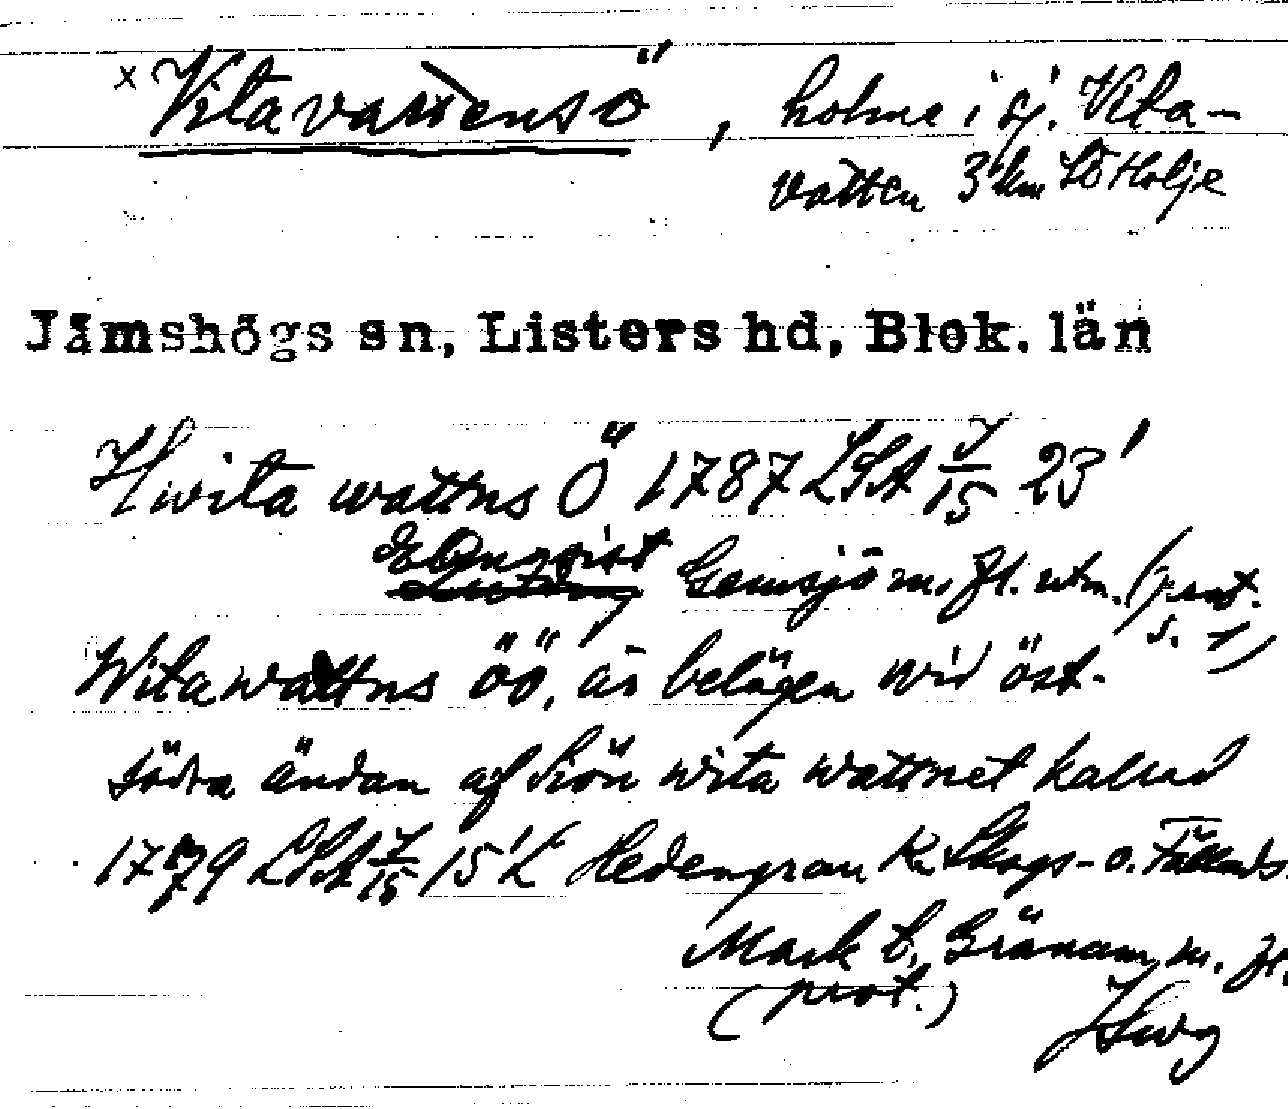 x Vitavattensö, holme i sj. Vita-
vatten 3 km SO Holje
Jämshögs sn, Listers hd, Blek. län
Hwita wattns Ö 1787 LSA J/15 23'
E Enqvist Gemsjö m. fl. utm. (prot. s. 1)
Wita wattns öö, är belägen wid öst.
södra ändan af Siön wita wattnet kallad
1779 LSA J/15 15' L Hedengran K. Skogs- o. Fällands.
Mark t. Gränum m. fl.
(prot.)